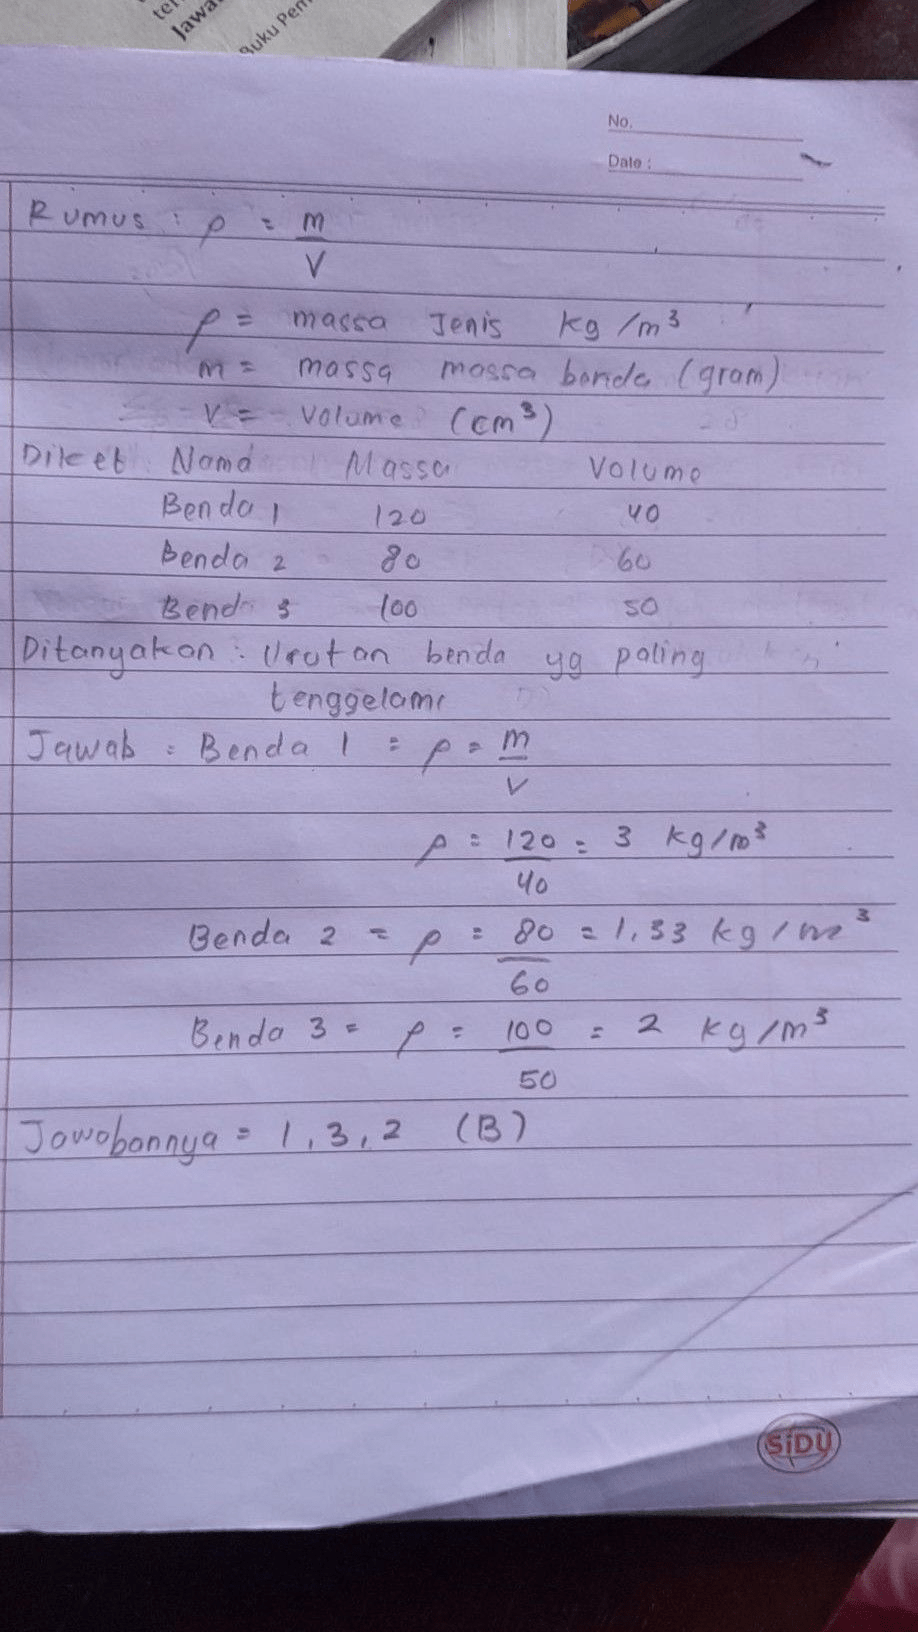 Jawa
Buku Pem
No.
Date :
Rumus : ρ = m
V
ρ = massa Jenis kg/m³
m = massa massa benda (gram)
V = Volume (cm³)
Diket Nama Massa Volume
Benda 1 120 40
Benda 2 80 60
Bend 3 100 50
Ditanyakan : Urutan benda yg paling
tenggelam
Jawab : Benda 1 = ρ = m
V
ρ = 120 = 3 kg/m³
40
Benda 2 = ρ = 80 = 1,33 kg/m³
60
Benda 3 = ρ = 100 = 2 kg/m³
50
Jawabannya = 1, 3, 2 (B)
SiDU